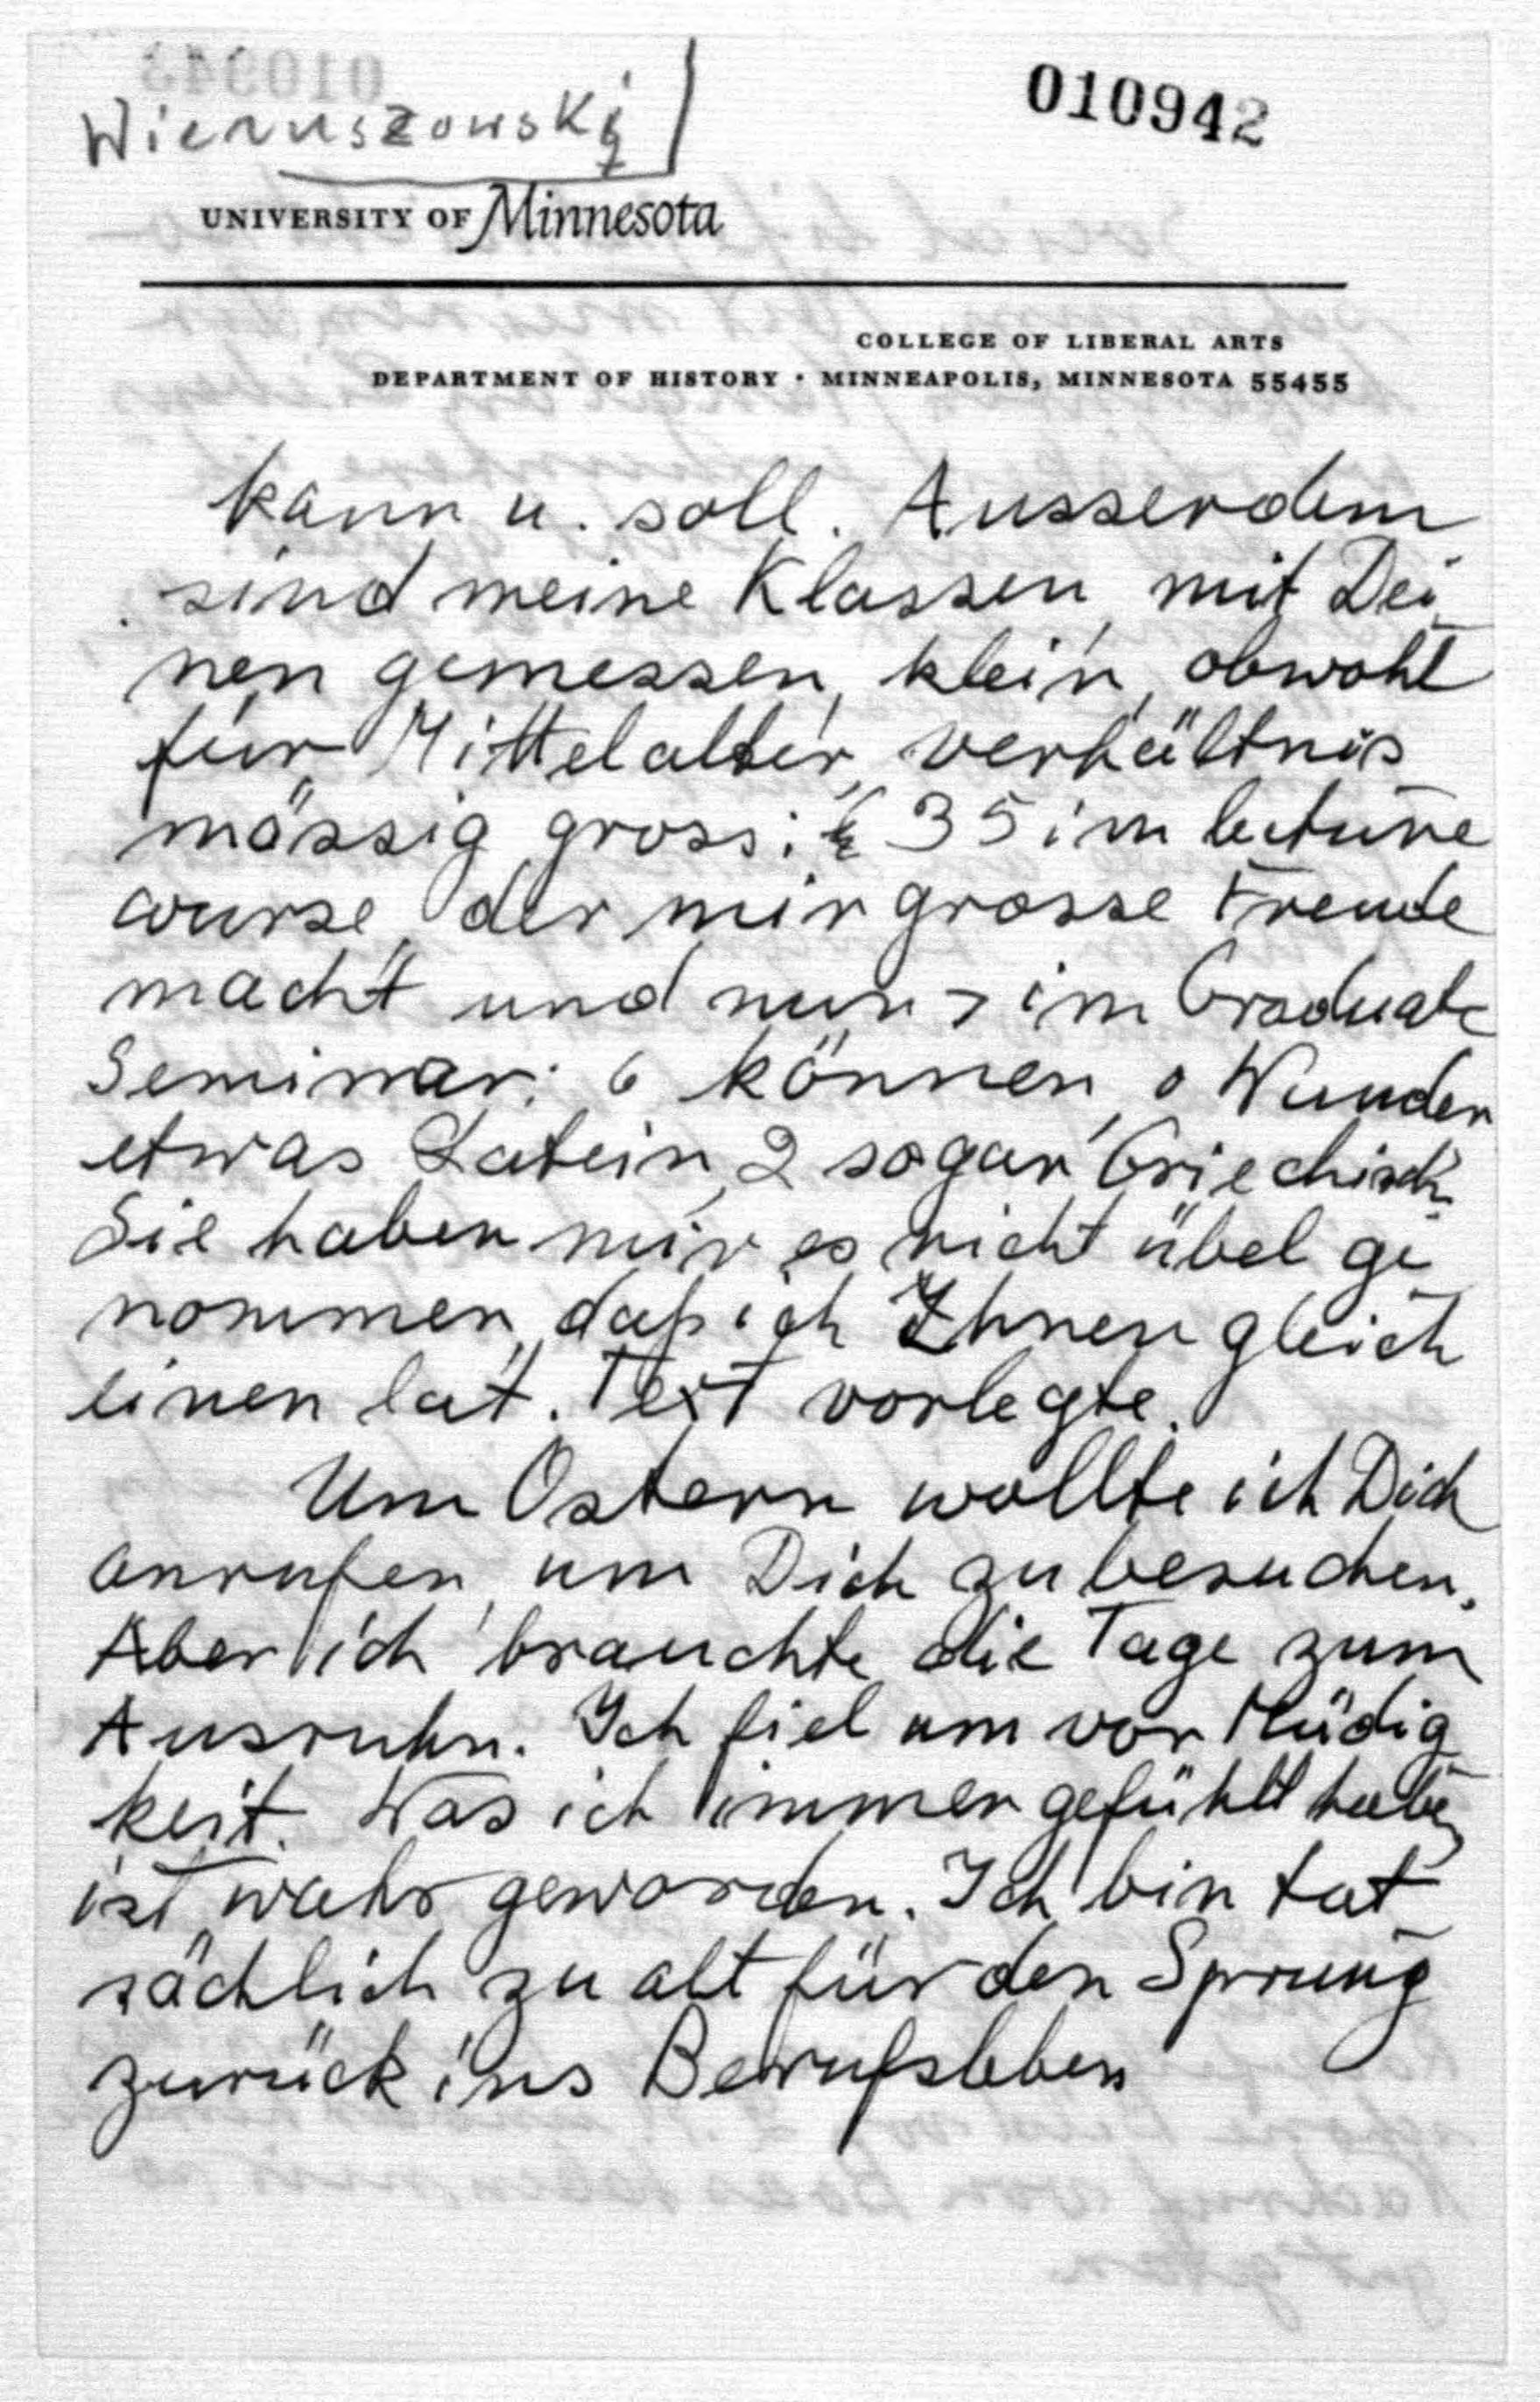 Wieruszowski
010942
UNIVERSITY OF Minnesota
COLLEGE OF LIBERAL ARTS
DEPARTMENT OF HISTORY · MINNEAPOLIS, MINNESOTA 55455
kann u. soll. Ausserdem
sind meine Klassen, mit Dei-
nen gemessen, klein, obwohl
für Mittelalter, verhältnis
mässig gross: 35 im lecture
course, der mir grosse Freude
macht und nun 7 im Graduate
Seminar: 6 können, o Wunder
etwas Latein, 2 sogar Griechisch.
Sie haben mir es nicht übel ge
nommen, daß ich Ihnen gleich
einen lat. Text vorlegte.
Um Ostern wollte ich Dich
anrufen, um Dich zu besuchen.
Aber ich brauchte die Tage zum
Ausruhn. Ich fiel um vor Müdig
keit. Was ich immer gefühlt habe,
ist wahr geworden. Ich bin tat-
sächlich zu alt für den Sprung
zurück ins Berufsleben